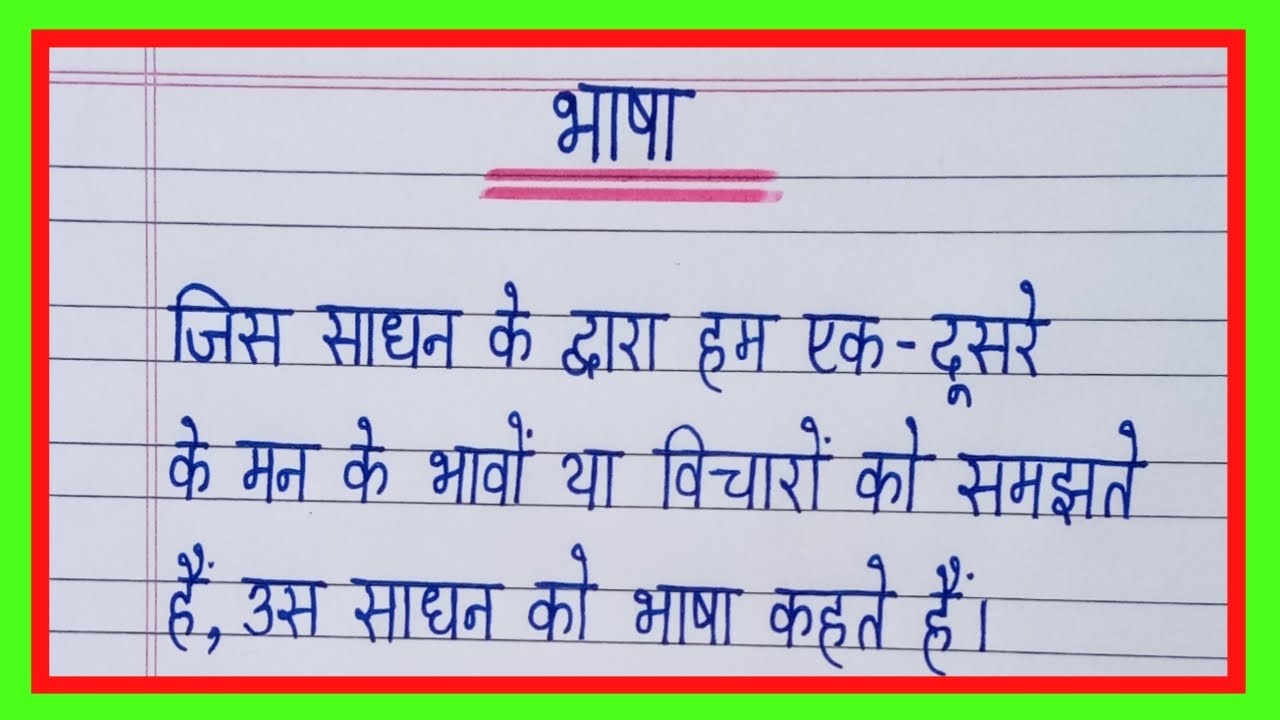 भाषा
जिस साधन के द्वारा हम एक-दूसरे
के मन के भावों या विचारों को समझते
हैं, उस साधन को भाषा कहते हैं।